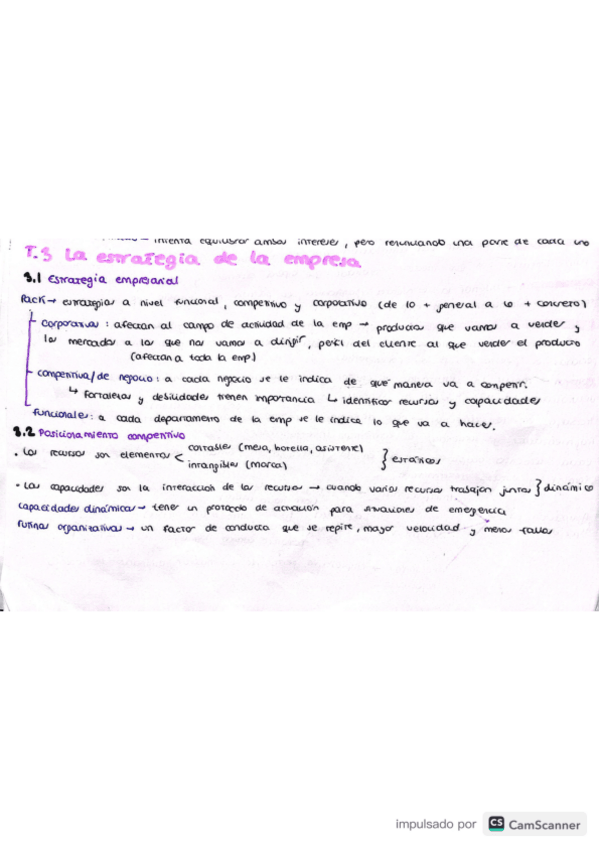 intenta equilibrar ambos intereses, pero renunciando una parte de cada uno
T.3 La estrategia de la empresa
3.1 Estrategia empresarial
Pack → estrategias a nivel funcional, competitivo y corporativo (de lo + general a lo + concreto)
corporativas: afectan al campo de actividad de la emp → productos que vamos a vender y
los mercados a los que nos vamos a dirigir, perfil del cliente al que vender el producto
(afectan a toda la emp)
competitiva/de negocio: a cada negocio se le indica de que manera va a competir.
↳ fortalezas y debilidades tienen importancia ↳ identificar recursos y capacidades
funcionales: a cada departamento de la emp se le indica lo que va a hacer.
3.2 Posicionamiento competitivo
• Los recursos son elementos < contables (mesa, botella, asistente)
intangibles (marca) } estáticos
• Las capacidades son la interacción de los recursos → cuando varios recursos trabajan juntos } dinámico
capacidades dinámicas → tener un protocolo de actuación para situaciones de emergencia
rutinas organizativas → un factor de conducta que se repite, mayor velocidad y menos fallos
impulsado por CS CamScanner